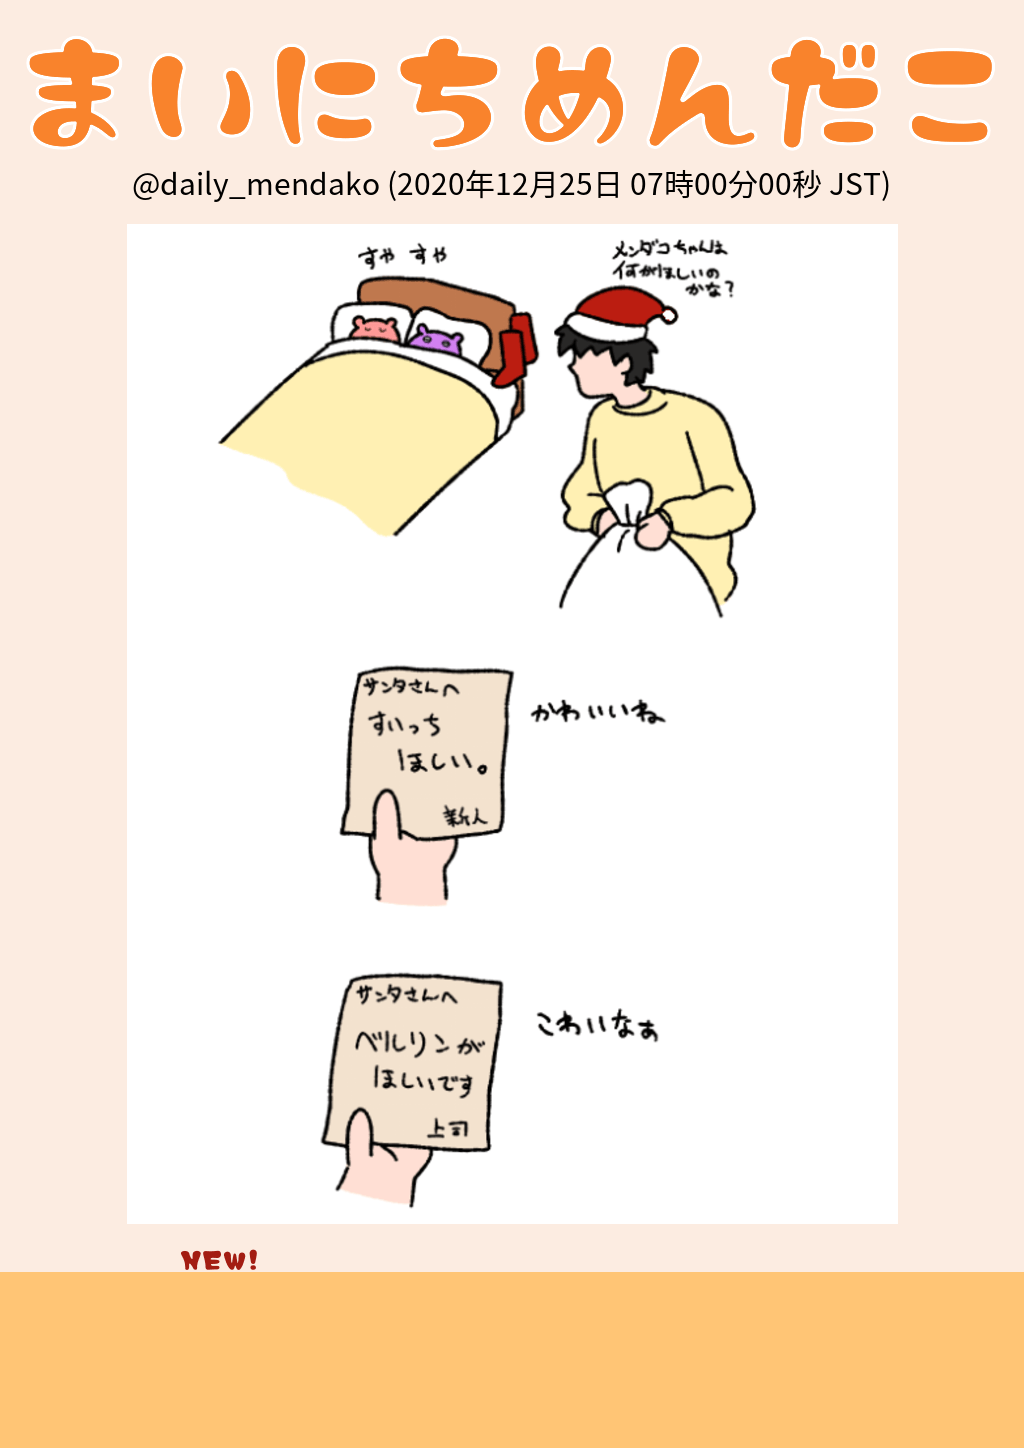 まいにちめんだこ
@daily_mendako (2020年12月25日 07時00分00秒 JST)
すや すや
メンダコちゃんは
何がほしいの
かな?
サンタさんへ
すいっち
ほしい。
新人
かわいいね
サンタさんへ
ベルリンが
ほしいです
上司
こわいなぁ
NEW!